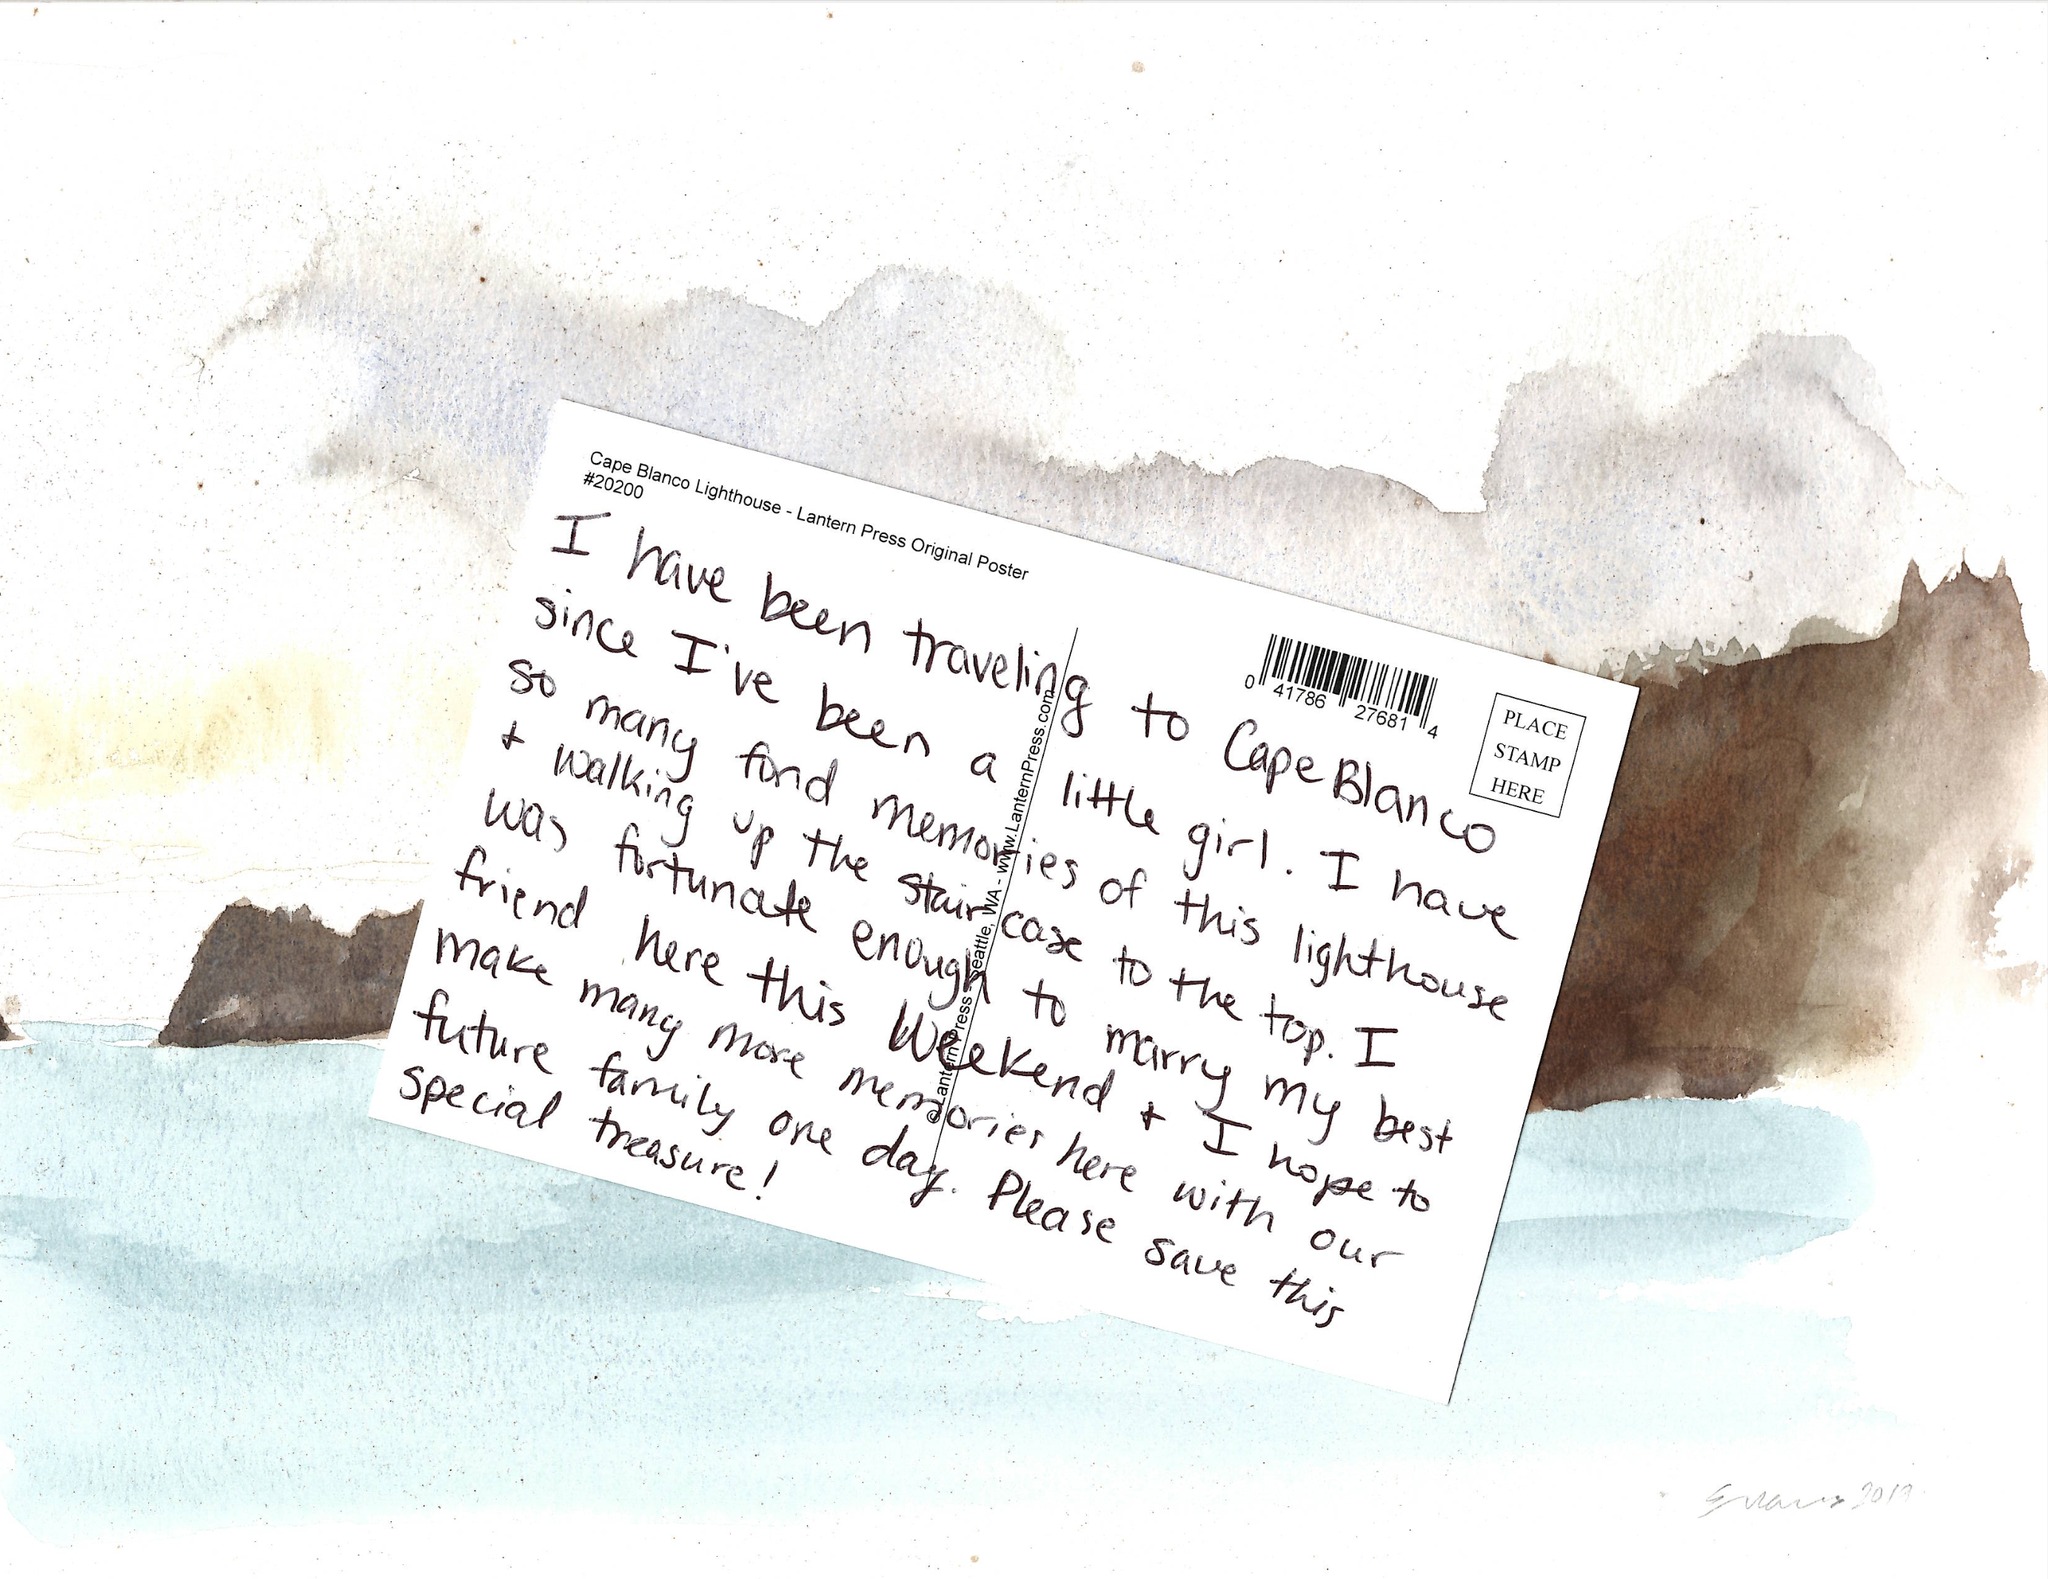 Cape Blanco Lighthouse - Lantern Press Original Poster
#20200
I have been traveling to Cape Blanco
since I've been a little girl. I have
so many fond memories of this lighthouse
+ walking up the staircase to the top. I
was fortunate enough to marry my best
friend here this weekend + I hope to
make many more memories here with our
future family one day. Please save this
special treasure!
© Lantern Press - Seattle, WA - www.LanternPress.com
0 41786 27681 4
PLACE
STAMP
HERE
Evans 2019